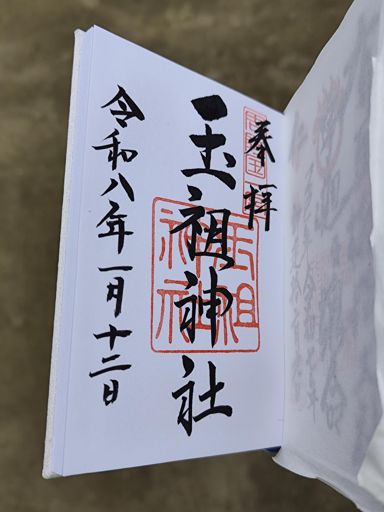 奉拝
玉祖神社
玉祖
神社
令和八年一月十二日